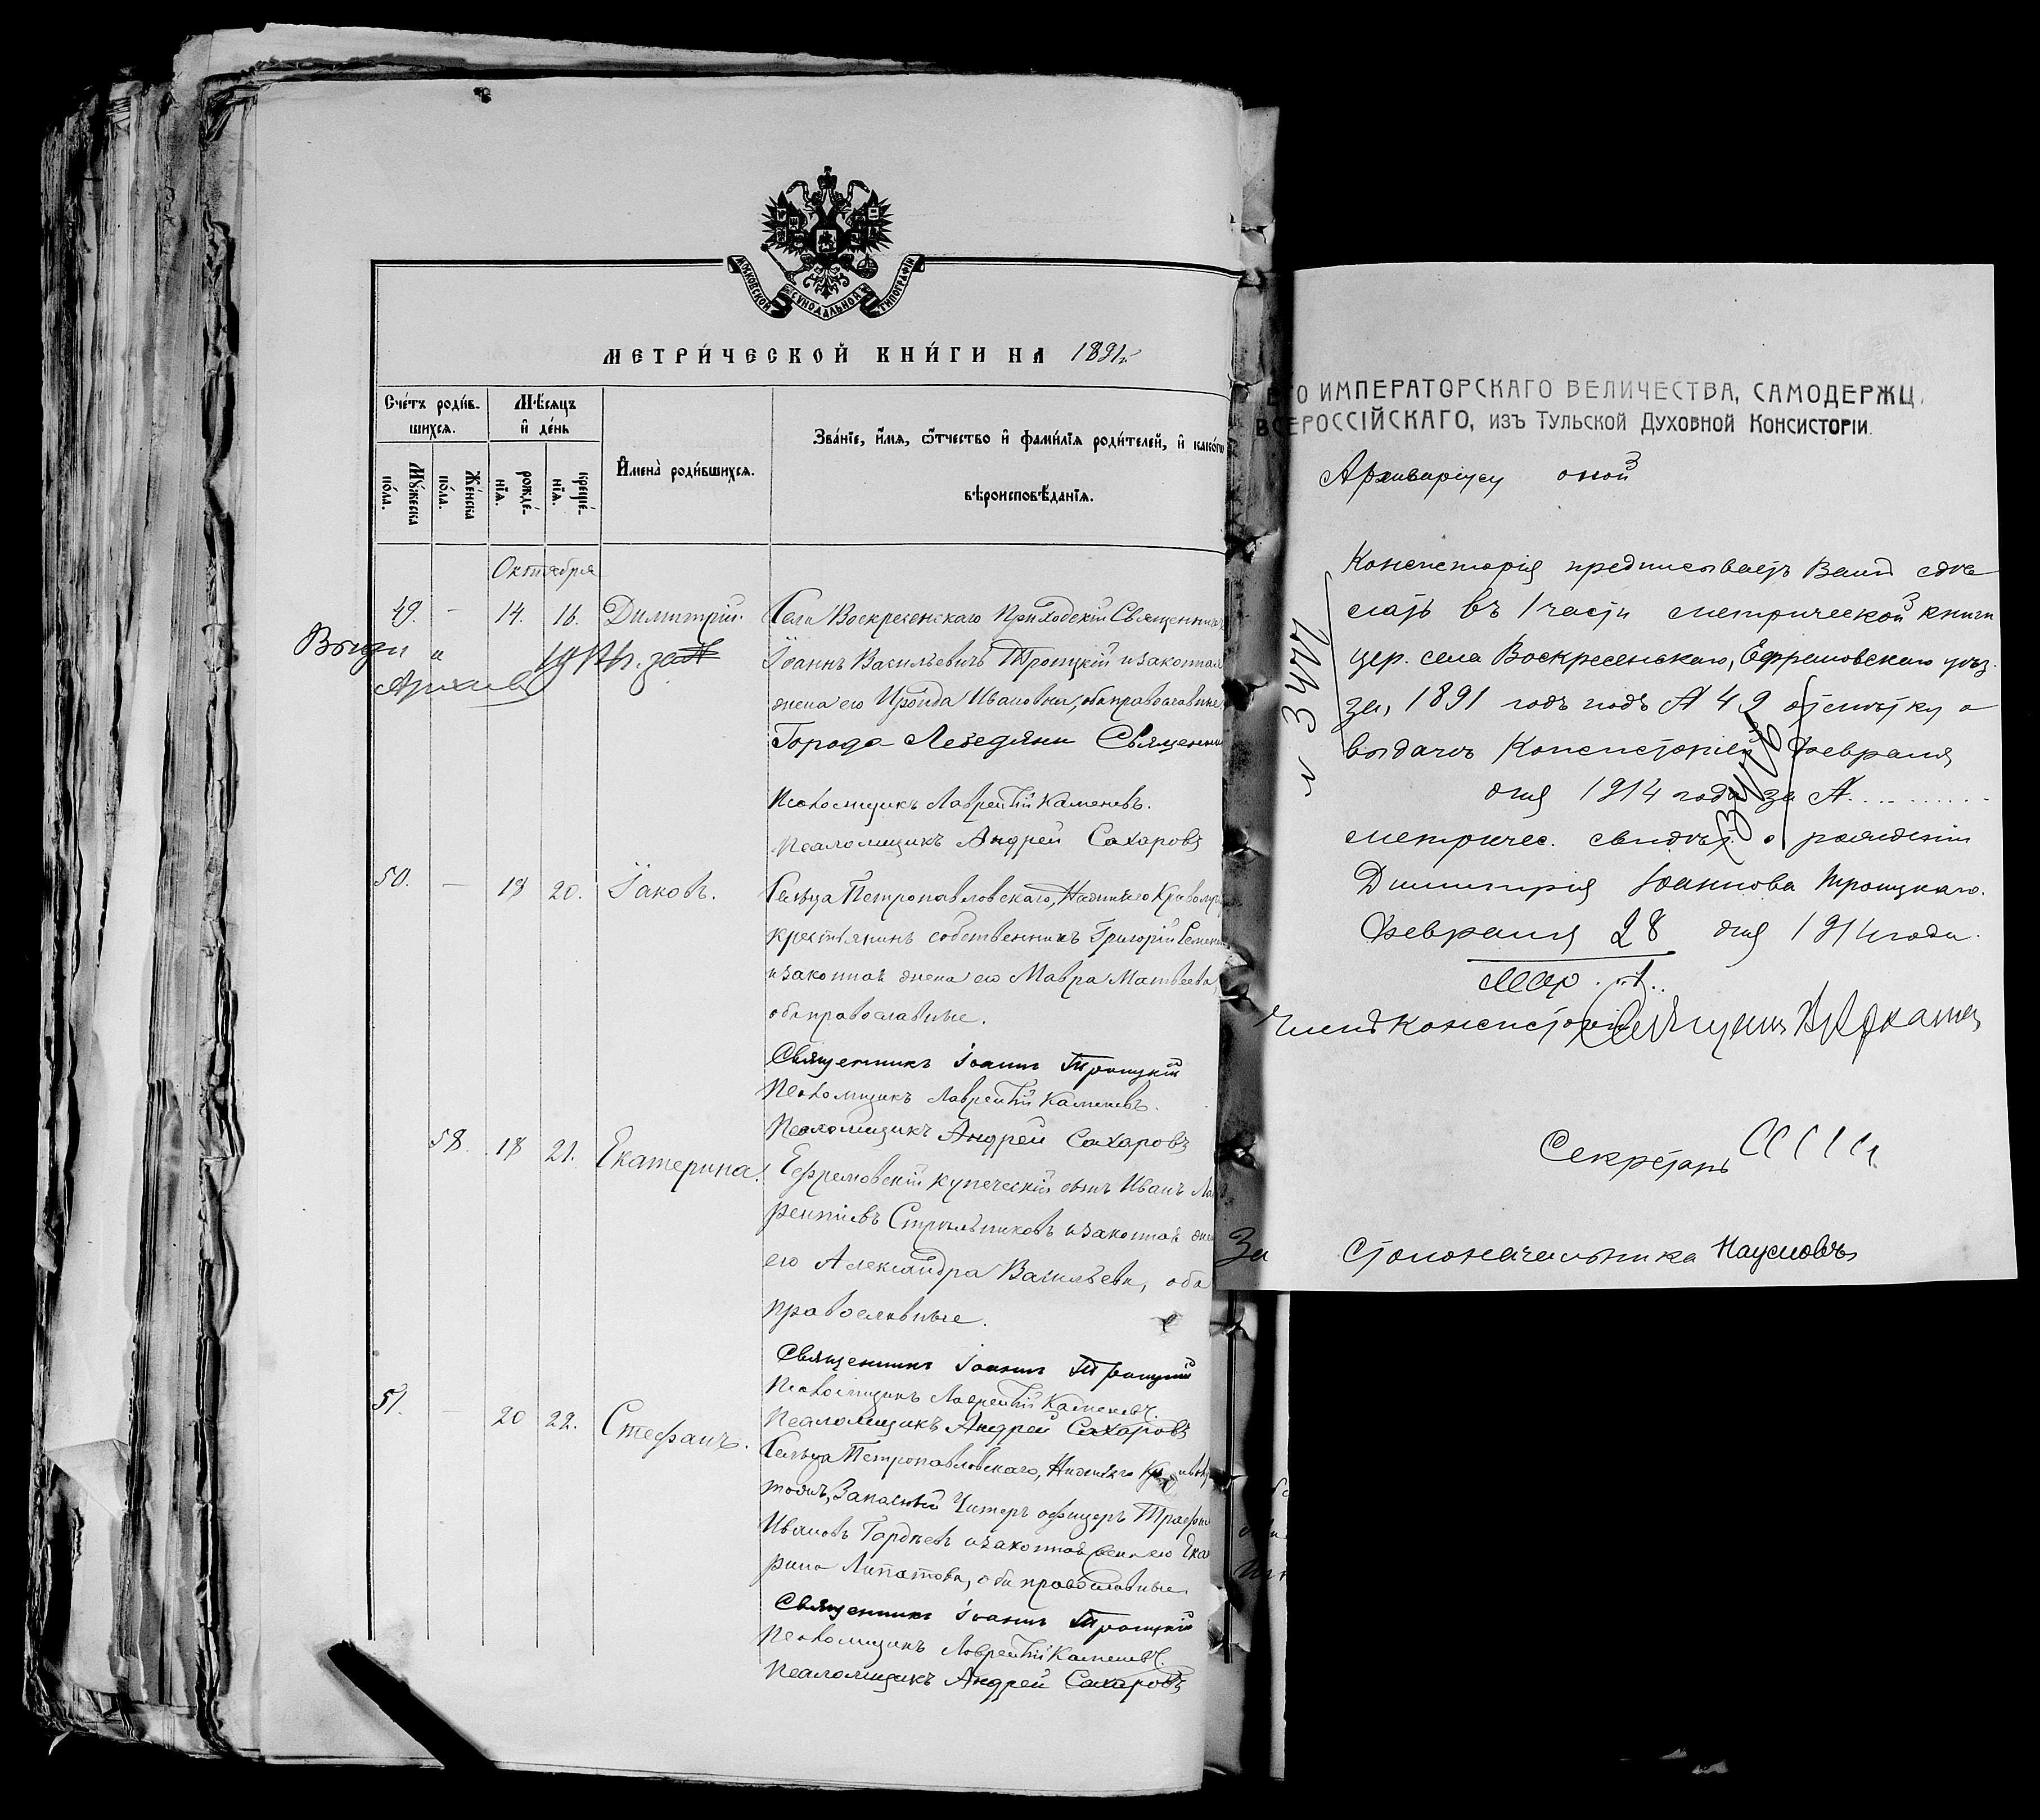 МОСКОВСКОЙ СѴНОДАЛЬНОЙ ТИПОГРАФІИ
МЕТРИ́ЧЕСКОЙ КНИ́ГИ НА 1891 г.
Сче́тъ роди́в-
шихсѧ.
Мѣ́сѧцъ
и҆ де́нь
Му́жеска
по́ла.
Же́нска
по́ла.
рожде́-
нїѧ.
креще́-
нїѧ.
И҆мена̀ роди́вшихсѧ.
Зва́нїе, и҆́мѧ, ѻ҆́тчество и҆ фамі́лїѧ роди́телей, и҆ како́гѡ
вѣроисповѣ́данїѧ.
Октября
49. - 14. 16. Димитрій. Села Воскресенскаго Приходскій Священникъ
Іоаннъ Васильевичъ Троицкій и законная
жена его Ираида Ивановна, оба православные.
Города Лебедяни Священник
Псаломщикъ Лаврентій Каменевъ.
Псаломщикъ Андрей Сахаровъ
50. - 18 20. Іаковъ. Сельца Петропавловскаго,
крестьянинъ собственникъ Григорій Семенов
и законная жена его Мавра Матвеева,
оба православные.
Священникъ Іоаннъ Троицкій
Псаломщикъ Лаврентій Каменевъ.
Псаломщикъ Андрей Сахаровъ
58. 18 21. Екатерина. Ефремовскій купеческій сынъ Иванъ Лав
рентіевъ Стрѣльниковъ и законная жена
его Александра Васильева, оба
православные.
Священникъ Іоаннъ Троицкій
Псаломщикъ Лаврентій Каменевъ.
Псаломщикъ Андрей Сахаровъ
51. - 20 22. Стефанъ. Сельца Петропавловскаго,
Запасный Унтеръ офицеръ
Ивановъ Гордѣевъ и законная жена его Ека
рина Липатова, оба православные
Священникъ Іоаннъ Троицкій
Псаломщикъ Лаврентій Каменевъ.
Псаломщикъ Андрей Сахаровъ
ЕГО ИМПЕРАТОРСКАГО ВЕЛИЧЕСТВА, САМОДЕРЖЦ
ВСЕРОССІЙСКАГО, изъ Тульской Духовной Консисторіи.
Архиваріусу оной
Консисторія предписываетъ Вамъ сдѣ
лать въ 1 части метрической книги
цер. села Воскресенскаго, Ефремовскаго уѣз.
за, 1891 годъ подъ № 49 отмѣтку о
выдачѣ Консисторіей Февраля
дня 1914 года за №............
метричес. свидѣт. о рожденіи
Димитрія Іоаннова Троицкаго.
Февраля 28 дня 1914 года.
Членъ Консисторіи
Секретарь
За Столоначальника Наумовъ